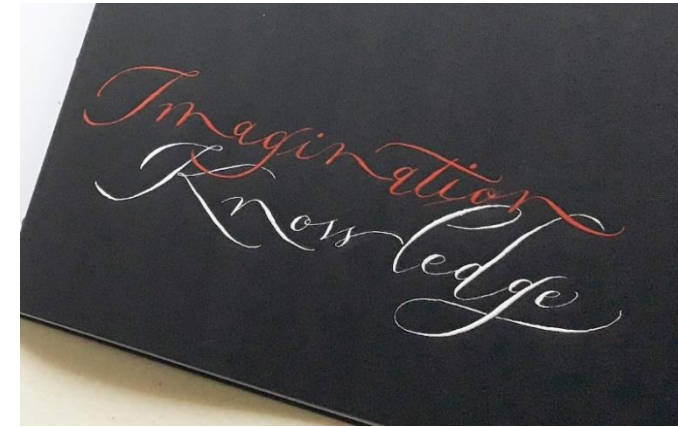 Imagination
Knowledge